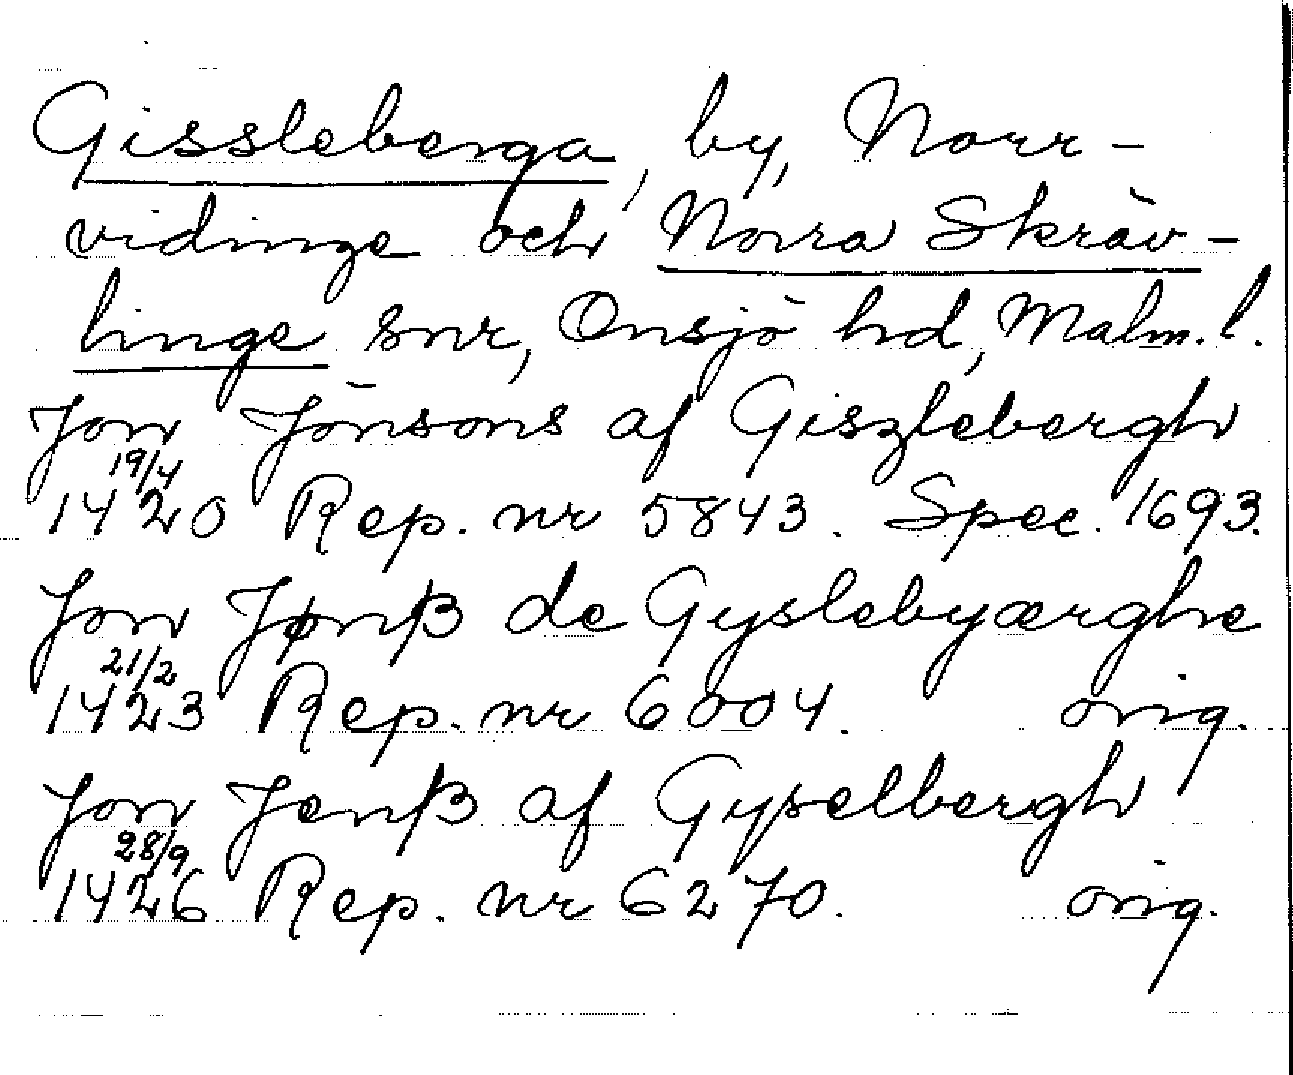 Gissleberga, by, Norr-
vidinge och Norra Skräv-
linge snr, Onsjö hd, Malm. l.
Jon Jönsons af Giszlebergh
19/4
1420 Rep. nr 5843. Spec. 1693.
Jon Jønß de Gyslebyærghe
21/2
1423 Rep. nr 6004. orig.
Jon Jenß af Gyselbergh
28/9
1426 Rep. nr 6270. orig.